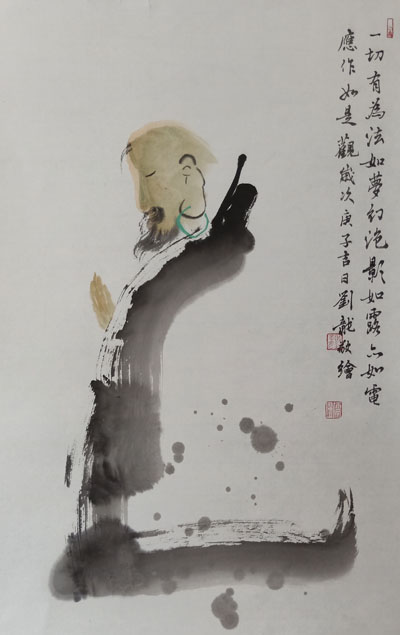 一切有為法如夢幻泡影如露亦如電
應作如是觀歲次庚子吉日劉龍敬繪